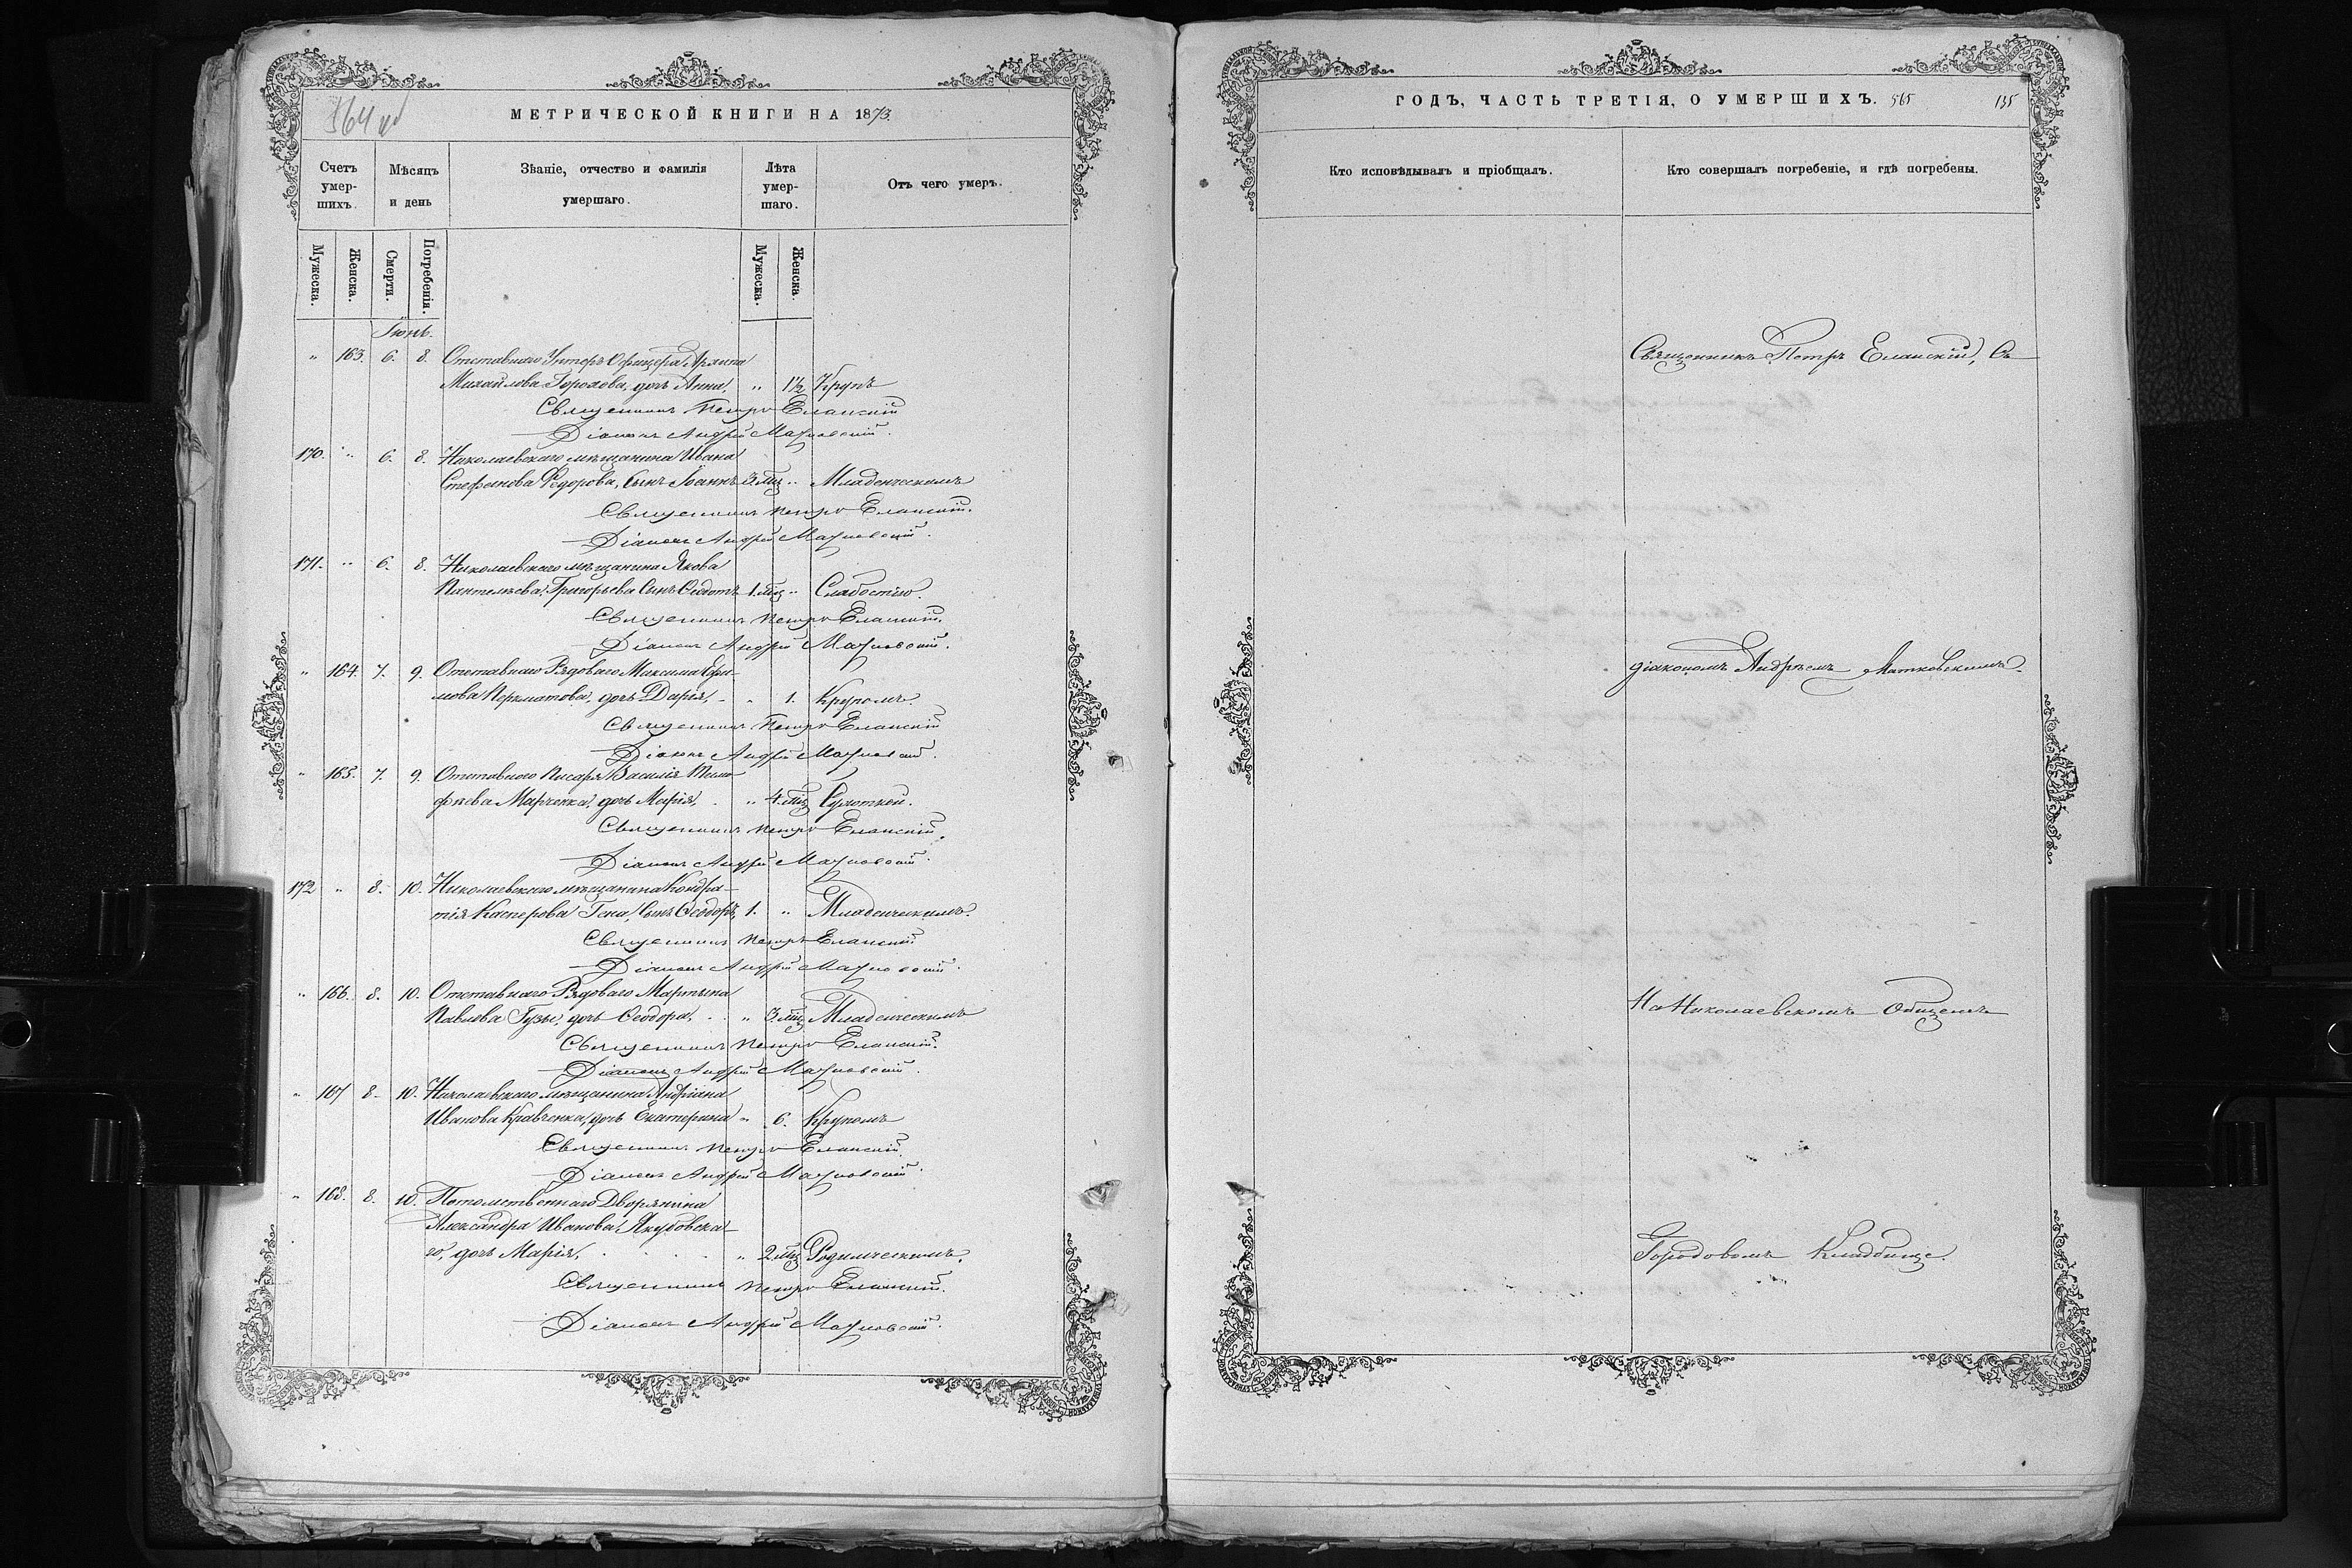 564
МЕТРИЧЕСКОЙ КНИГИ НА 1873.
Счетъ умершихъ.
Мѣсяцъ и день
Званіе, отчество и фамилія умершаго.
Лѣта умершаго.
Отъ чего умеръ.
Мужеска. Женска. Смерти. Погребенія. Мужеска. Женска.
Іюнь.
" 163. 6. 8. Отставнаго Унтеръ Офицера
Михайлова Горохова, дочь Анна, " 1½ Крупъ
Священникъ Петръ Еланскій
Діаконъ Андрей Матковскій.
170. " 6. 8. Николаевскаго мѣщанина Ивана
Стефанова Ѳедорова, сынъ Іоаннъ 3 мц " Младенческимъ
Священникъ Петръ Еланскій.
Діаконъ Андрей Матковскій.
171. " 6. 8. Николаевскаго мѣщанина Якова
Пантелѣева Григорьева сынъ Ѳеодотъ 1 мц " Слабостію.
Священникъ Петръ Еланскій.
Діаконъ Андрей Матковскій.
" 164. 7. 9. Отставнаго Рядоваго Максима Ефи-
мова дочь Дарія, " 1. Крупомъ.
Священникъ Петръ Еланскій
Діаконъ Андрей Матковскій.
" 165. 7. 9. Отставнаго Писаря Василія Тимо-
фѣева Марченка, дочь Марія, " 4 мц Сухоткой.
Священникъ Петръ Еланскій.
Діаконъ Андрей Матковскій.
172 " 8. 10. Николаевскаго мѣщанина Кондра-
тія Касперова сынъ Ѳеодоръ, 1. " Младенческимъ.
Священникъ Петръ Еланскій
Діаконъ Андрей Матковскій.
" 166. 8. 10. Отставнаго Рядоваго Мартына
Павлова Гузы, дочь Ѳеодора, " 3 мц Младенческимъ
Священникъ Петръ Еланскій.
Діаконъ Андрей Матковскій.
" 167 8. 10. Николаевскаго мѣщанина Андріана
Иванова Кравченка, дочь Екатерина " 6. Крупомъ
Священникъ Петръ Еланскій.
Діаконъ Андрей Матковскій.
" 168. 8. 10. Потомственнаго Дворянина
Александра Иванова Якубовска-
го, дочь Марія, " 2 мц Родимческимъ.
Священникъ Петръ Еланскій.
Діаконъ Андрей Матковскій.
ГОДЪ, ЧАСТЬ ТРЕТІЯ, О УМЕРШИХЪ. 565 135
Кто исповѣдывалъ и пріобщалъ.
Кто совершалъ погребеніе, и гдѣ погребены.
Священникъ Петръ Еланскій, Съ
діакономъ Андреемъ Матковскимъ.
На Николаевскомъ Общемъ
Городовомъ Кладбище.